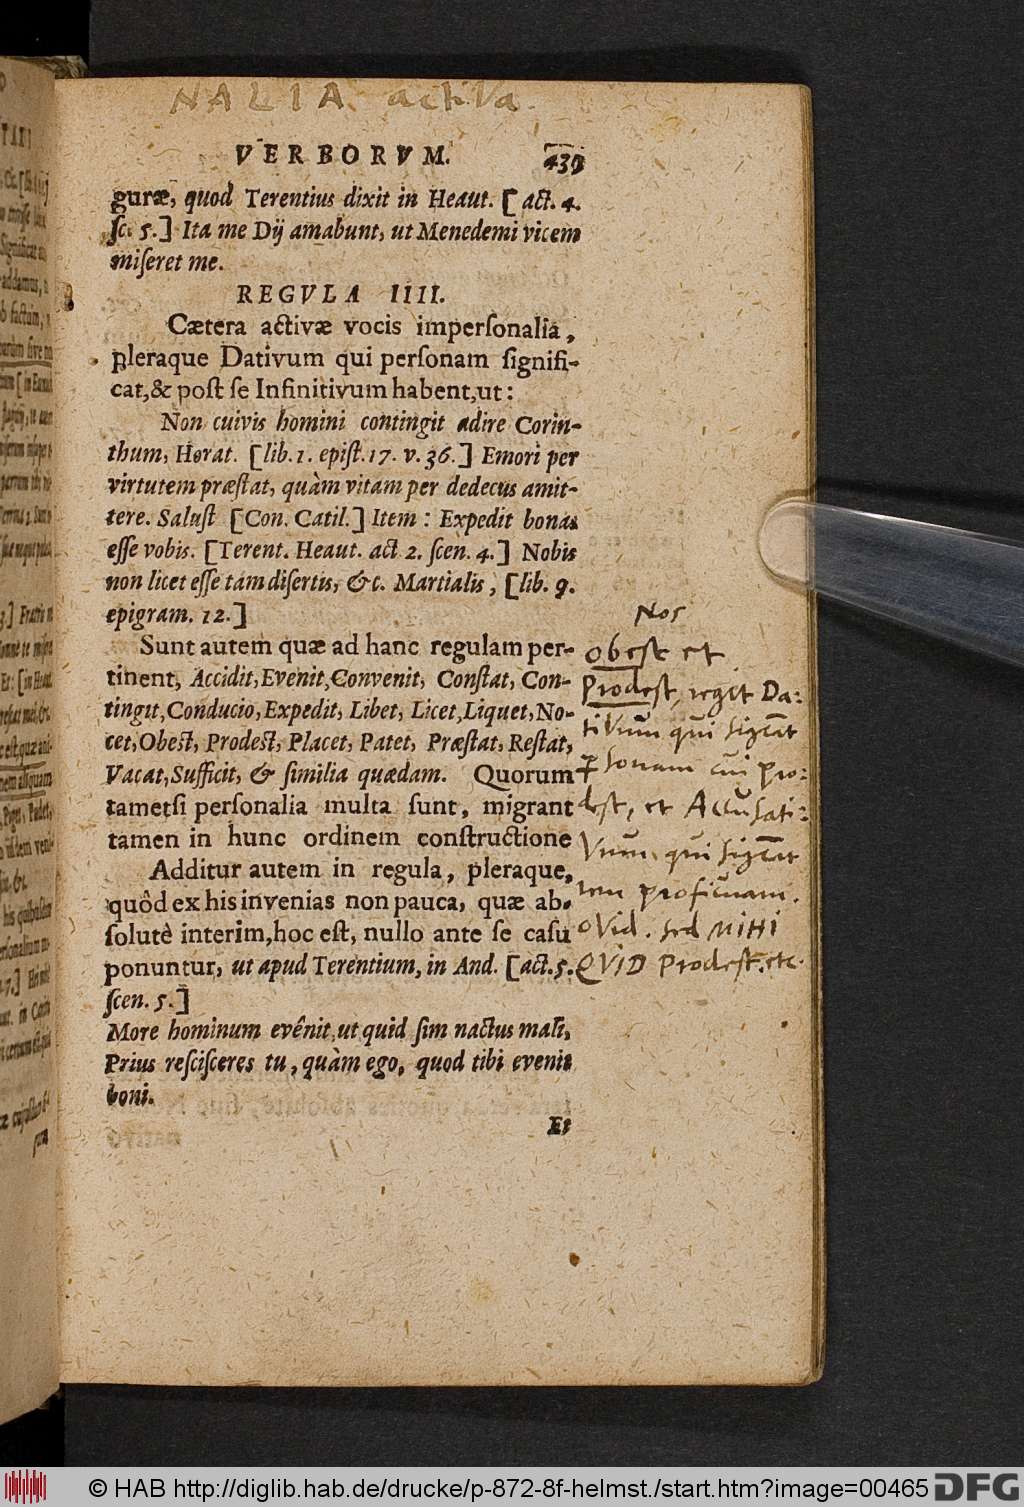 NALIA activa.
VERBORVM. 439
guræ, quod Terentius dixit in Heaut. [act. 4.
ſc. 5.] Ita me Dij amabunt, ut Menedemi vicem
miſeret me.
REGVLA IIII.
Cætera activæ vocis imperſonalia,
pleraque Dativum qui perſonam ſignifi-
cat, & poſt ſe Infinitivum habent, ut:
Non cuivis homini contingit adire Corin-
thum, Horat. [lib. 1. epiſt. 17. v. 36.] Emori per
virtutem præſtat, quàm vitam per dedecus amit-
tere. Saluſt [Con. Catil.] Item: Expedit bonas
eſſe vobis. [Terent. Heaut. act 2. ſcen. 4.] Nobis
non licet eſſe tam diſertis, &c. Martialis, [lib. 9.
epigram. 12.]
Sunt autem quæ ad hanc regulam per-
tinent, Accidit, Evenit, Convenit, Conſtat, Con-
tingit, Conducio, Expedit, Libet, Licet, Liquet, No-
cet, Obeſt, Prodeſt, Placet, Patet, Præſtat, Reſtat,
Vacat, Sufficit, & ſimilia quædam. Quorum
tametſi perſonalia multa ſunt, migrant
tamen in hunc ordinem conſtructione
Additur autem in regula, pleraque,
quôd ex his invenias non pauca, quæ ab-
ſolutè interim, hoc eſt, nullo ante ſe caſu
ponuntur, ut apud Terentium, in And. [act. 5.
ſcen. 5.]
More hominum evênit, ut quid ſim nactus mali,
Prius reſciſceres tu, quàm ego, quod tibi evenit
boni.
Et
Nos
obest et
Prodest, reget Da-
tivum qui sigcat
ꝑsonam cui pro-
dest, et Accusati-
vum, qui sigcat
rem proficuam.
oVid. sed MIHI
QVID Prodest. etc.
© HAB http://diglib.hab.de/drucke/p-872-8f-helmst./start.htm?image=00465
DFG